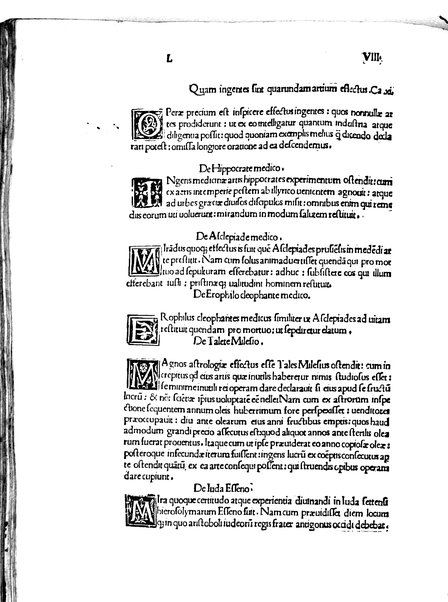 L VIII.
Quam ingentes sint quarundam artium effectus. Ca. xi.
OPeræ precium est inspicere effectus ingentes: quos nonnullæ ar
tes prodiderunt: ut ex eo intelligatur quantum industria atque
diligentia possit: quod quoniam exemplis melius q̄ dicendo decla
rari potest: omissa longiore oratione ad ea descendemus.
De Hippocrate medico.
INgens medicinæ artis hippocrates experimentum ostendit: cum
ex aeris intemperie pestem ab illyrico uenientem agnouit: atque
ad urbes græciæ diuersos discipulos misit: omnibus enim qui reme
diis eorum uti uoluerunt: mirandum in modum salutem restituit.
De Asclepiade medico.
MIrādus quoq; effectus is fuit quē Asclepiades prusiēsis in medēdi ar
te prestitit. Nam cum solus animaduertisset quendā qui pro mor
tuo ad sepulturam efferebatur: adhuc: subsistere eos qui illum
efferebant iussit: pristinæq; ualitudini hominem restituit.
De Erophilo cleophante medico.
ERophilus cleophantes medicus similiter ut Asclepiades ad uitam
restituit quendam pro mortuo; ut sepeliretur elatum.
De Talete Milesio.
MAgnos astrologiæ effectus esse Tales Milesius ostendit: cum in
crepitus qd eius artis quæ inutilis haberetur nimis studiosus esset:
se minime inutili rei operam dare declarauit si eius apud se fructū
lucrū: & nō: scientiæ ipsius uoluptatē cēneret Nam cum ex astrorum inspe
ctione sequentem annum oleis huberrimum fore perspexisset: uenditores
præoccupauit: diu ante olearum eius anni fructibus emptis: quos haud
admodum grandi precio assecutus est quod aliquot annos ante sterilis olea
rum fuerat prouentus. Itaque cum ut ipse præuiderat eo anno copiosæ oleæ:
posteroque infecundæ iterum fuissent: ingens lucrū ex cōeptis consecutus ap
te ostendit quātū, ex ea arte consequi possent: qui struendis opibus operam
dare cupiunt.
De Iuda Esseno.
MIra quoque certitudo atque experientia diuinandi in Iuda fuit
hierosolymarum Esseno fuit. Nam cum præuidisset diem locum
q; in quo aristoboli iudeorū regis frater antigonus occidi debebat.